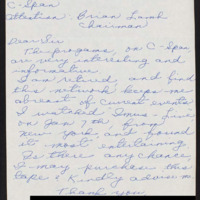 C-Span
Attention: Brian Lamb
Chairman
Dear Sir
The programs, on C-Span
are very interesting and
informative.
I'm retired, and find
this network keeps me
abreast of current events
I watched Imus-Live,
on Jan 7th from
New York and found
it most entertaining.
Is there any chance,
I may purchase this
tape? Kindly advise me
Thank you